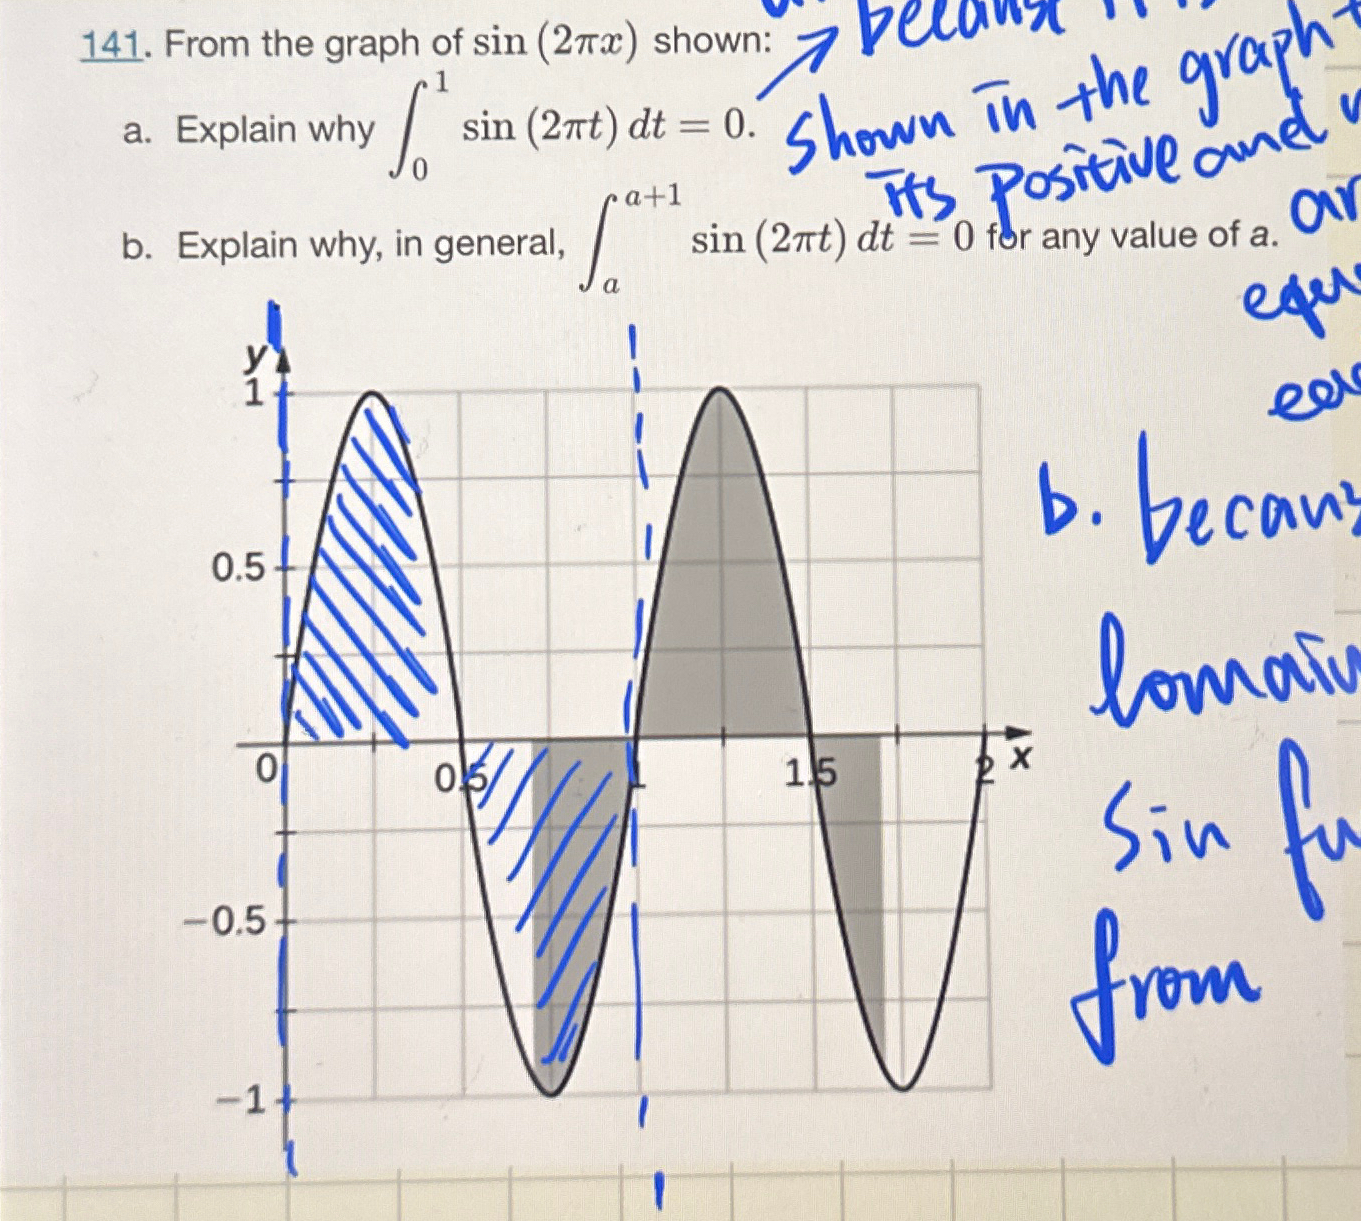 141. From the graph of sin (2πx) shown:
a. Explain why ∫₀¹ sin (2πt) dt = 0.
b. Explain why, in general, ∫ₐᵃ⁺¹ sin (2πt) dt = 0 for any value of a.
because it is
shown in the graph
its positive and
b. becaus
Sin fu
from
y
1
0.5
0
0.5
1
1.5
2
x
−0.5
−1